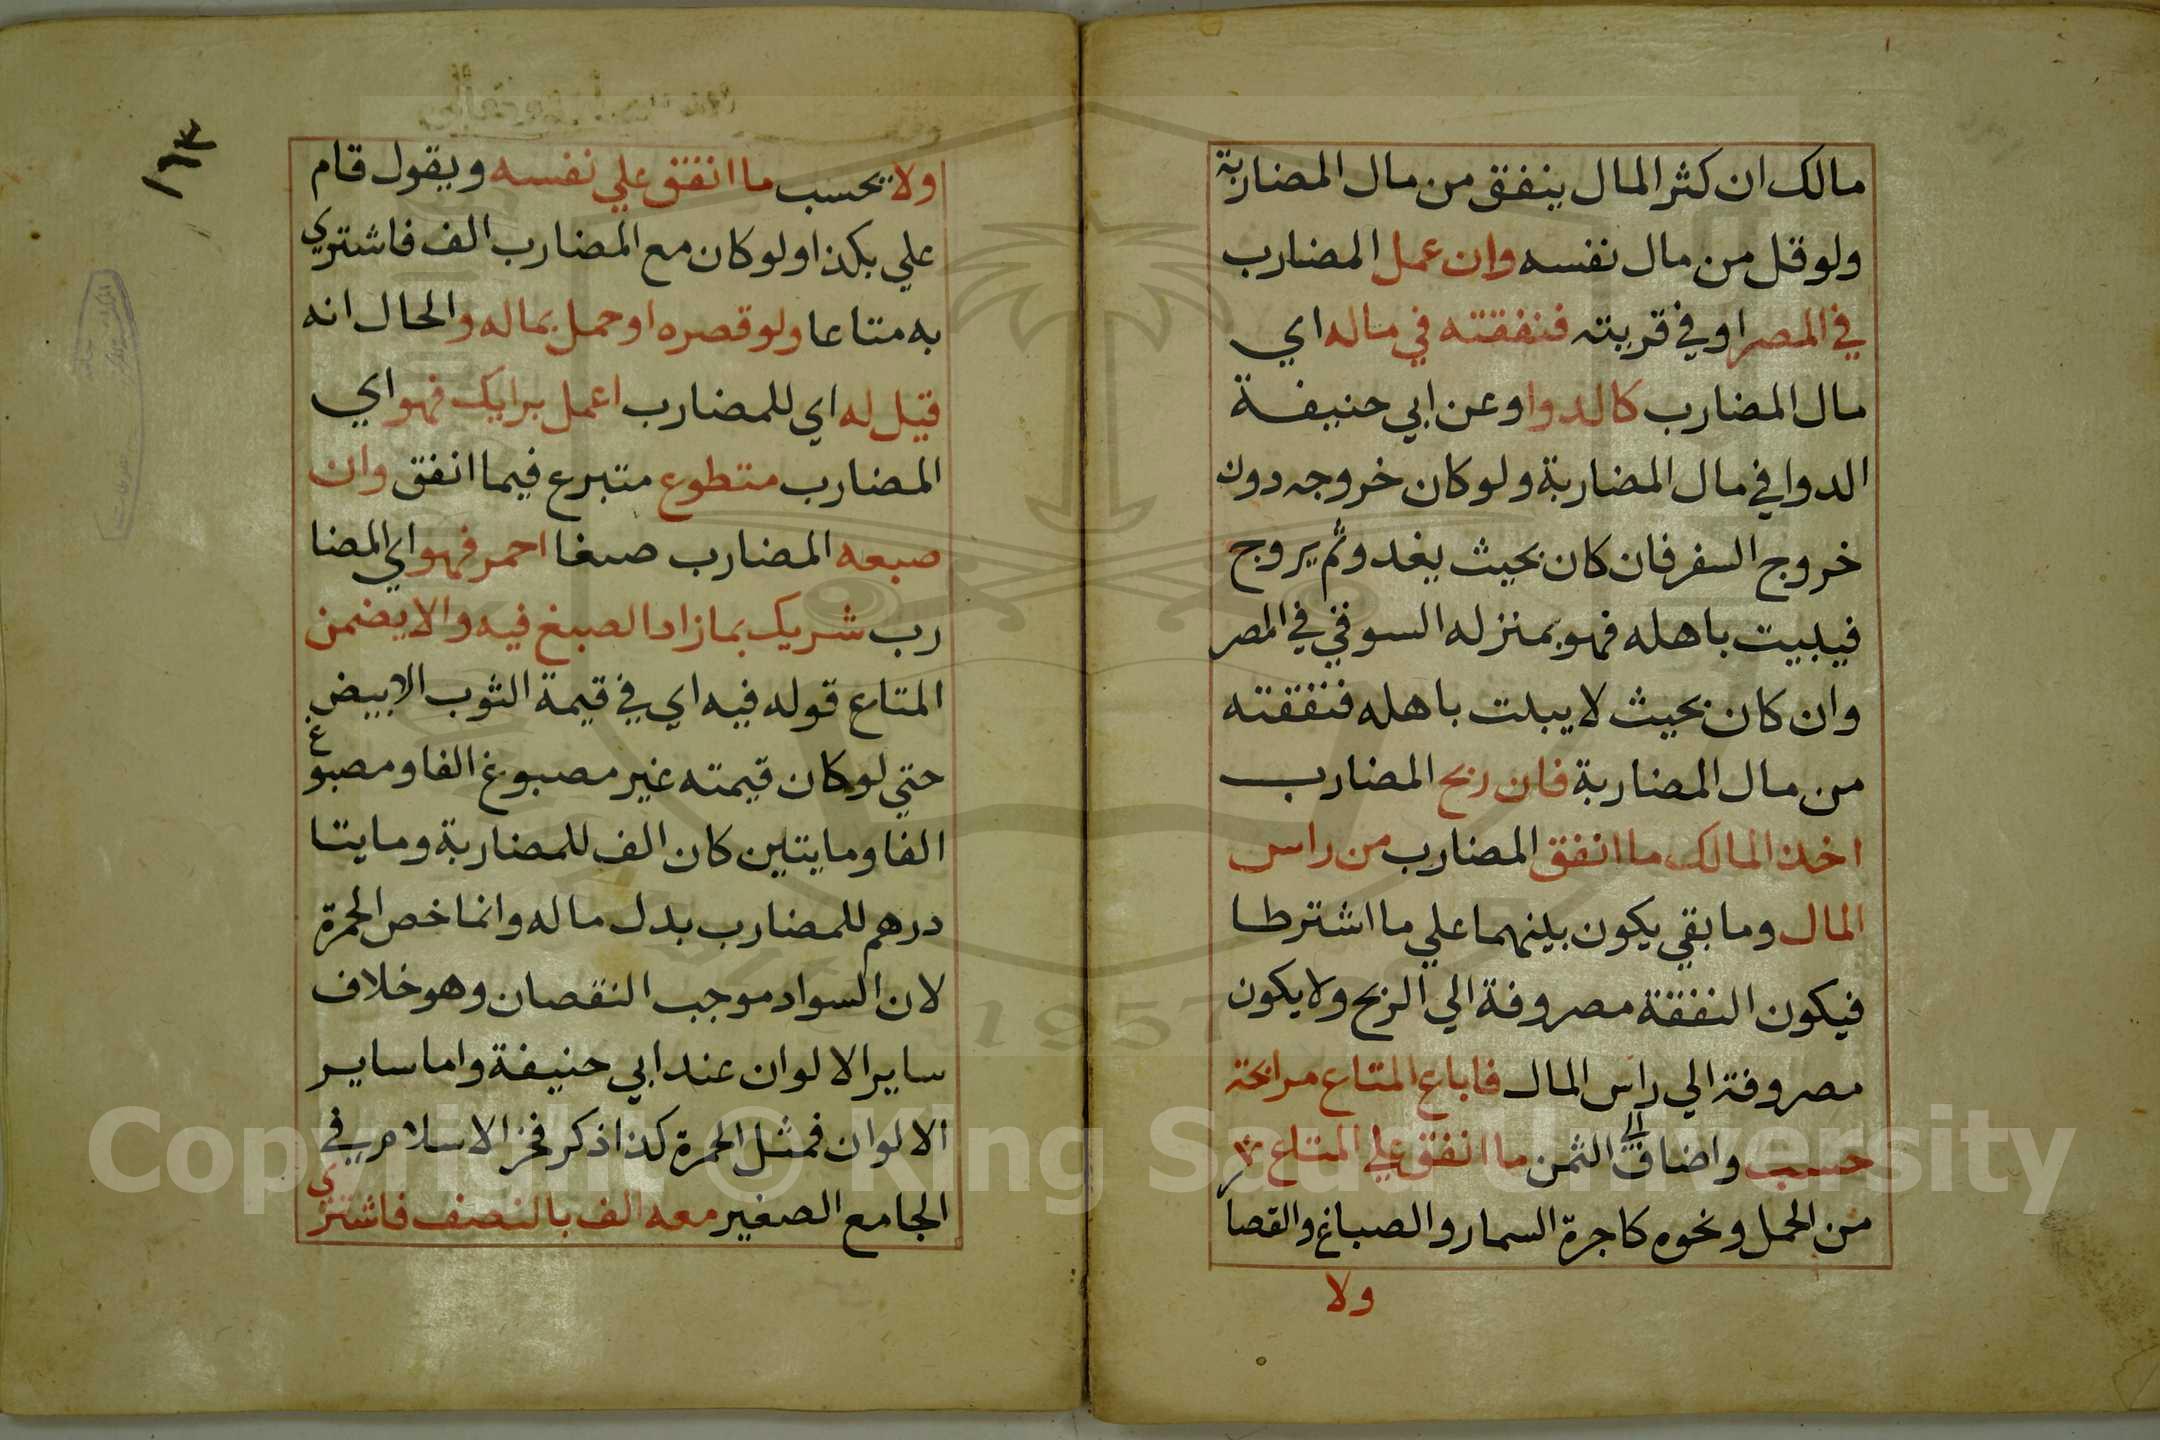 مالك ان كثر المال ينفق من مال المضاربة
ولو قل من مال نفسه وان عمل المضارب
في المصر او في قريته فنفقته في ماله اي
مال المضارب كالدوا وعن ابي حنيفة
الدوا في مال المضاربة ولو كان خروجه دون
خروج السفر فان كان بحيث يغدو ثم يروح
فيبيت باهله فهو بمنزله السوقي في المصر
وان كان بحيث لا يبيت باهله فنفقته
من مال المضاربة فان ربح المضارب
اخذ المالك ما انفق المضارب من راس
المال وما بقي يكون بينهما علي ما اشترطا
فيكون النفقة مصروفة الي الربح ولا يكون
مصروفة الي راس المال فاباع المتاع مرابحة
حسب واضاف الي الثمن ما انفق علي المتاع
من الحمل ونحوه كاجرة السمار والصباغ والقصا
ولا
١٦٣
ولا يحسب ما انفق علي نفسه ويقول قام
علي بكذا ولو كان مع المضارب الف فاشتري
به متاعا ولو قصره او حمل بماله والحال انه
قيل له اي للمضارب اعمل برايك فهو اي
المضارب متطوع متبرع فيما انفق وان
صبعه المضارب صبغا احمر فهو اي المضا
رب شريك بما زاد الصبغ فيه والا يضمن
المتاع قوله فيه اي في قيمة الثوب الابيض
حتي لو كان قيمته غير مصبوغ الفا ومصبوغ
الفا ومايتين كان الف للمضاربة ومايتا
درهم للمضارب بدل ماله وانما خص الحمرة
لان السواد موجب النقصان وهو خلاف
ساير الالوان عند ابي حنيفة واما ساير
الالوان فمثل الحمرة كذا ذكر فخر الاسلام في
الجامع الصغير معه الف بالنصف فاشتري
Copyright © King Saud University
1957